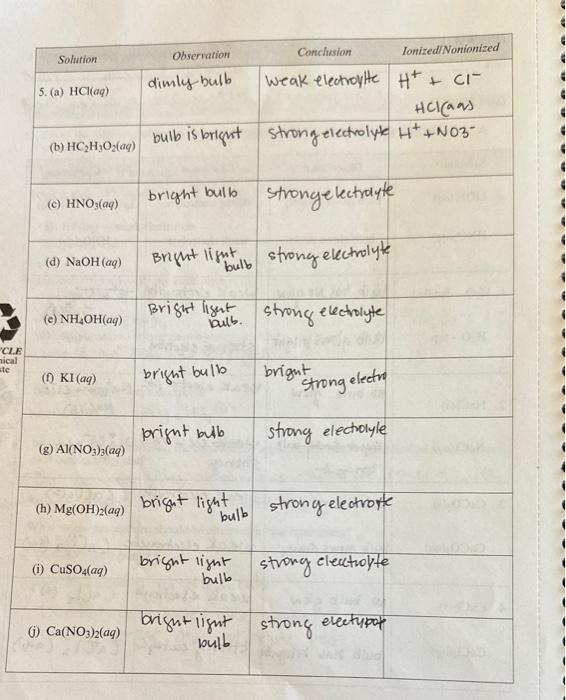 Solution Observation Conclusion Ionized/Nonionized
5. (a) HCl(aq) dimly bulb weak electrolyte H⁺ + Cl⁻
HCl(aq)
(b) HC₂H₃O₂(aq) bulb is bright strong electrolyte H⁺ + NO3⁻
(c) HNO₃(aq) bright bulb strong electrolyte
(d) NaOH(aq) Bright light
bulb strong electrolyte
(e) NH₄OH(aq) Bright light
bulb. strong electrolyte
(f) KI(aq) bright bulb bright
strong electro
(g) Al(NO₃)₃(aq) bright bulb strong electrolyte
(h) Mg(OH)₂(aq) bright light
bulb strong electrolyte
(i) CuSO₄(aq) bright light
bulb strong electrolyte
(j) Ca(NO₃)₂(aq) bright light
bulb strong
CLE